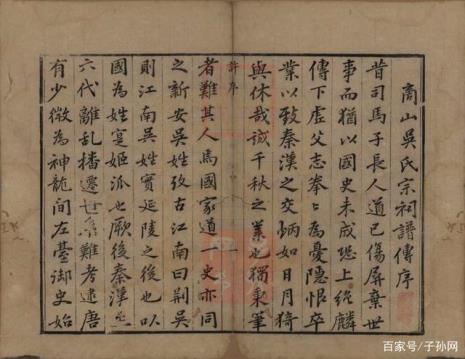 商山吳氏宗祠譜傳序
昔司馬子長人道已傷屏棄世
事而猶以國史未成恐上絕麟
傳下虛父志拳々為憂隱恨卒
業以致秦漢之文炳如日月猗
與休哉誠千秋之業也獨秉筆
許序
者難其人焉國家道一史亦同
之新安吳姓攷古江南曰荆吳
則江南吳姓實延陵之後也以
國為姓寔姬派也厥後秦漢
六代離亂播遷世系難考逮唐
有少微為神龍間左臺御史始
百家号/子孙网